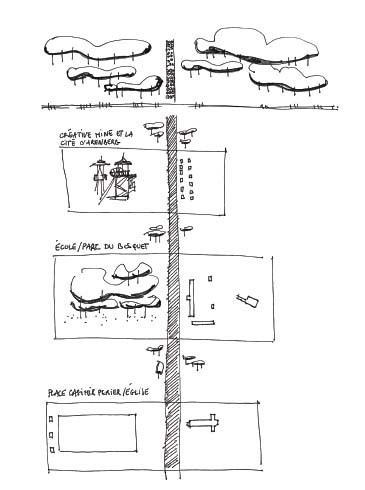 CRÉATIVE MINE ET LA
CITÉ D'ARENBERG
ÉCOLE/PARC DU BOSQUET
PLACE CASIMIR PERIER/ÉGLISE